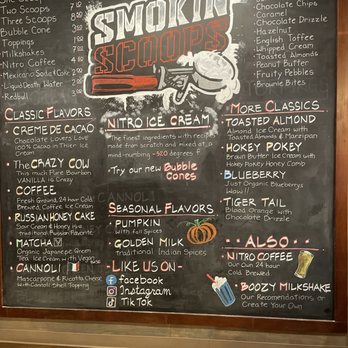 Two Scoops
Three Scoops
Bubble Cone
Toppings
Milkshakes
Nitro Coffee
Mexican Soda & Coke
Liquid Death Water
Redbull
SMOKIN
SCOOPS
Chocolate Chips
Caramel
Chocolate Drizzle
Hazelnut
English Toffee
Whipped Cream
Toasted Almond
Peanut Butter
Fruity Pebbles
Brownie Bites
CLASSIC FLAVORS
CREME DE CACAO
Chocolate Lovers Love
100% Cacao in Thier Ice
Cream
The CRAZY COW
This much Pure Bourbon
VANILLA is Crazy
COFFEE
Fresh Ground, 24 hour Cold
Brewed, Coffee Ice Cream
RUSSIAN HONEY CAKE
Sour Cream & Honey is a
traditional Russian Favorite
MATCHA
Organic Japanese Green
Tea Ice Cream with Vegan
CANNOLI
Mascarpone & Ricotta Cheese
with Cannoli Shell Topping
NITRO ICE CREAM
The finest ingredients with recipes
made from scratch and mixed at a
mind-numbing -320 degrees F
Try our new Bubble
Cones
CANNOLI
SEASONAL FLAVORS
PUMPKIN
with Fall Spices
GOLDEN MILK
traditional Indian Spices
-LIKE US ON-
facebook
Instagram
TikTok
MORE CLASSICS
TOASTED ALMOND
Almond Ice Cream with
Toasted Almonds & Marzipan
HOKEY POKEY
Braun Butter Ice Cream with
Hokey Pokey Honey Comb
BLUEBERRY
Just Organic Blueberries
Wow!!
TIGER TAIL
Blood Orange with
Chocolate Drizzle
...ALSO...
NITRO COFFEE
Our own 24 hour
Cold Brewed
BOOZY MILKSHAKE
Our Recomendations or
Create Your Own